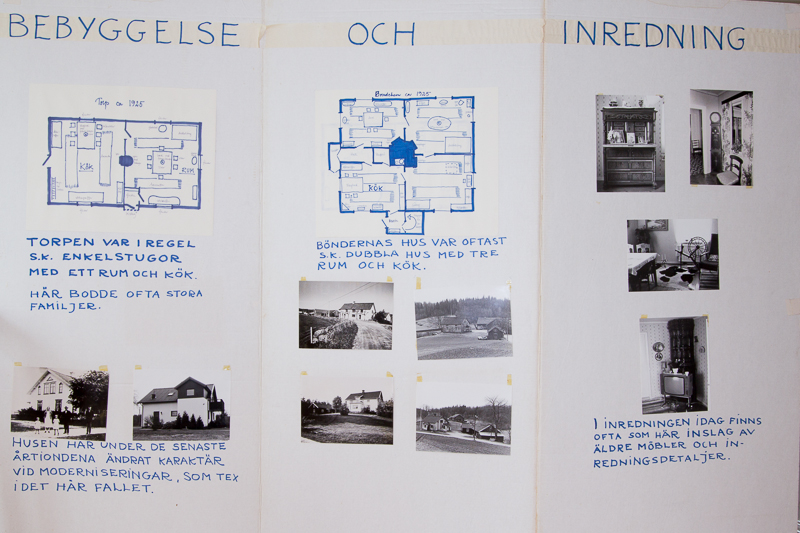 BEBYGGELSE OCH INREDNING
Torp ca 1925
KÖK
RUM
TORPEN VAR I REGEL
S.K. ENKELSTUGOR
MED ETT RUM OCH KÖK.
HÄR BODDE OFTA STORA
FAMILJER.
HUSEN HAR UNDER DE SENASTE
ÅRTIONDENA ÄNDRAT KARAKTÄR
VID MODERNISERINGAR, SOM TEX
I DET HÄR FALLET.
Bondehus ca 1925
KÖK
BÖNDERNAS HUS VAR OFTAST
S.K. DUBBLA HUS MED TRE
RUM OCH KÖK.
I INREDNINGEN IDAG FINNS
OFTA SOM HÄR INSLAG AV
ÄLDRE MÖBLER OCH IN-
REDNINGSDETALJER.